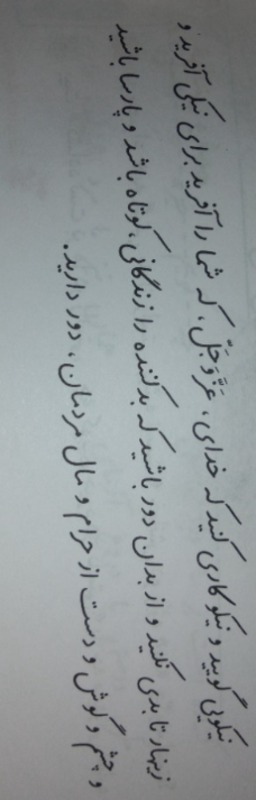 نیکویی گویید و نیکوکاری کنید که خدای، عَزَّوَجَلّ، که شما را آفرید برای نیکی آفرید و
زینهار تا بدی نکنید و از بدان دور باشید که بدکننده را زندگانی، کوتاه باشد و پارسا باشید
و چشم و گوش و دست از حرام و مال مردمان، دور دارید.